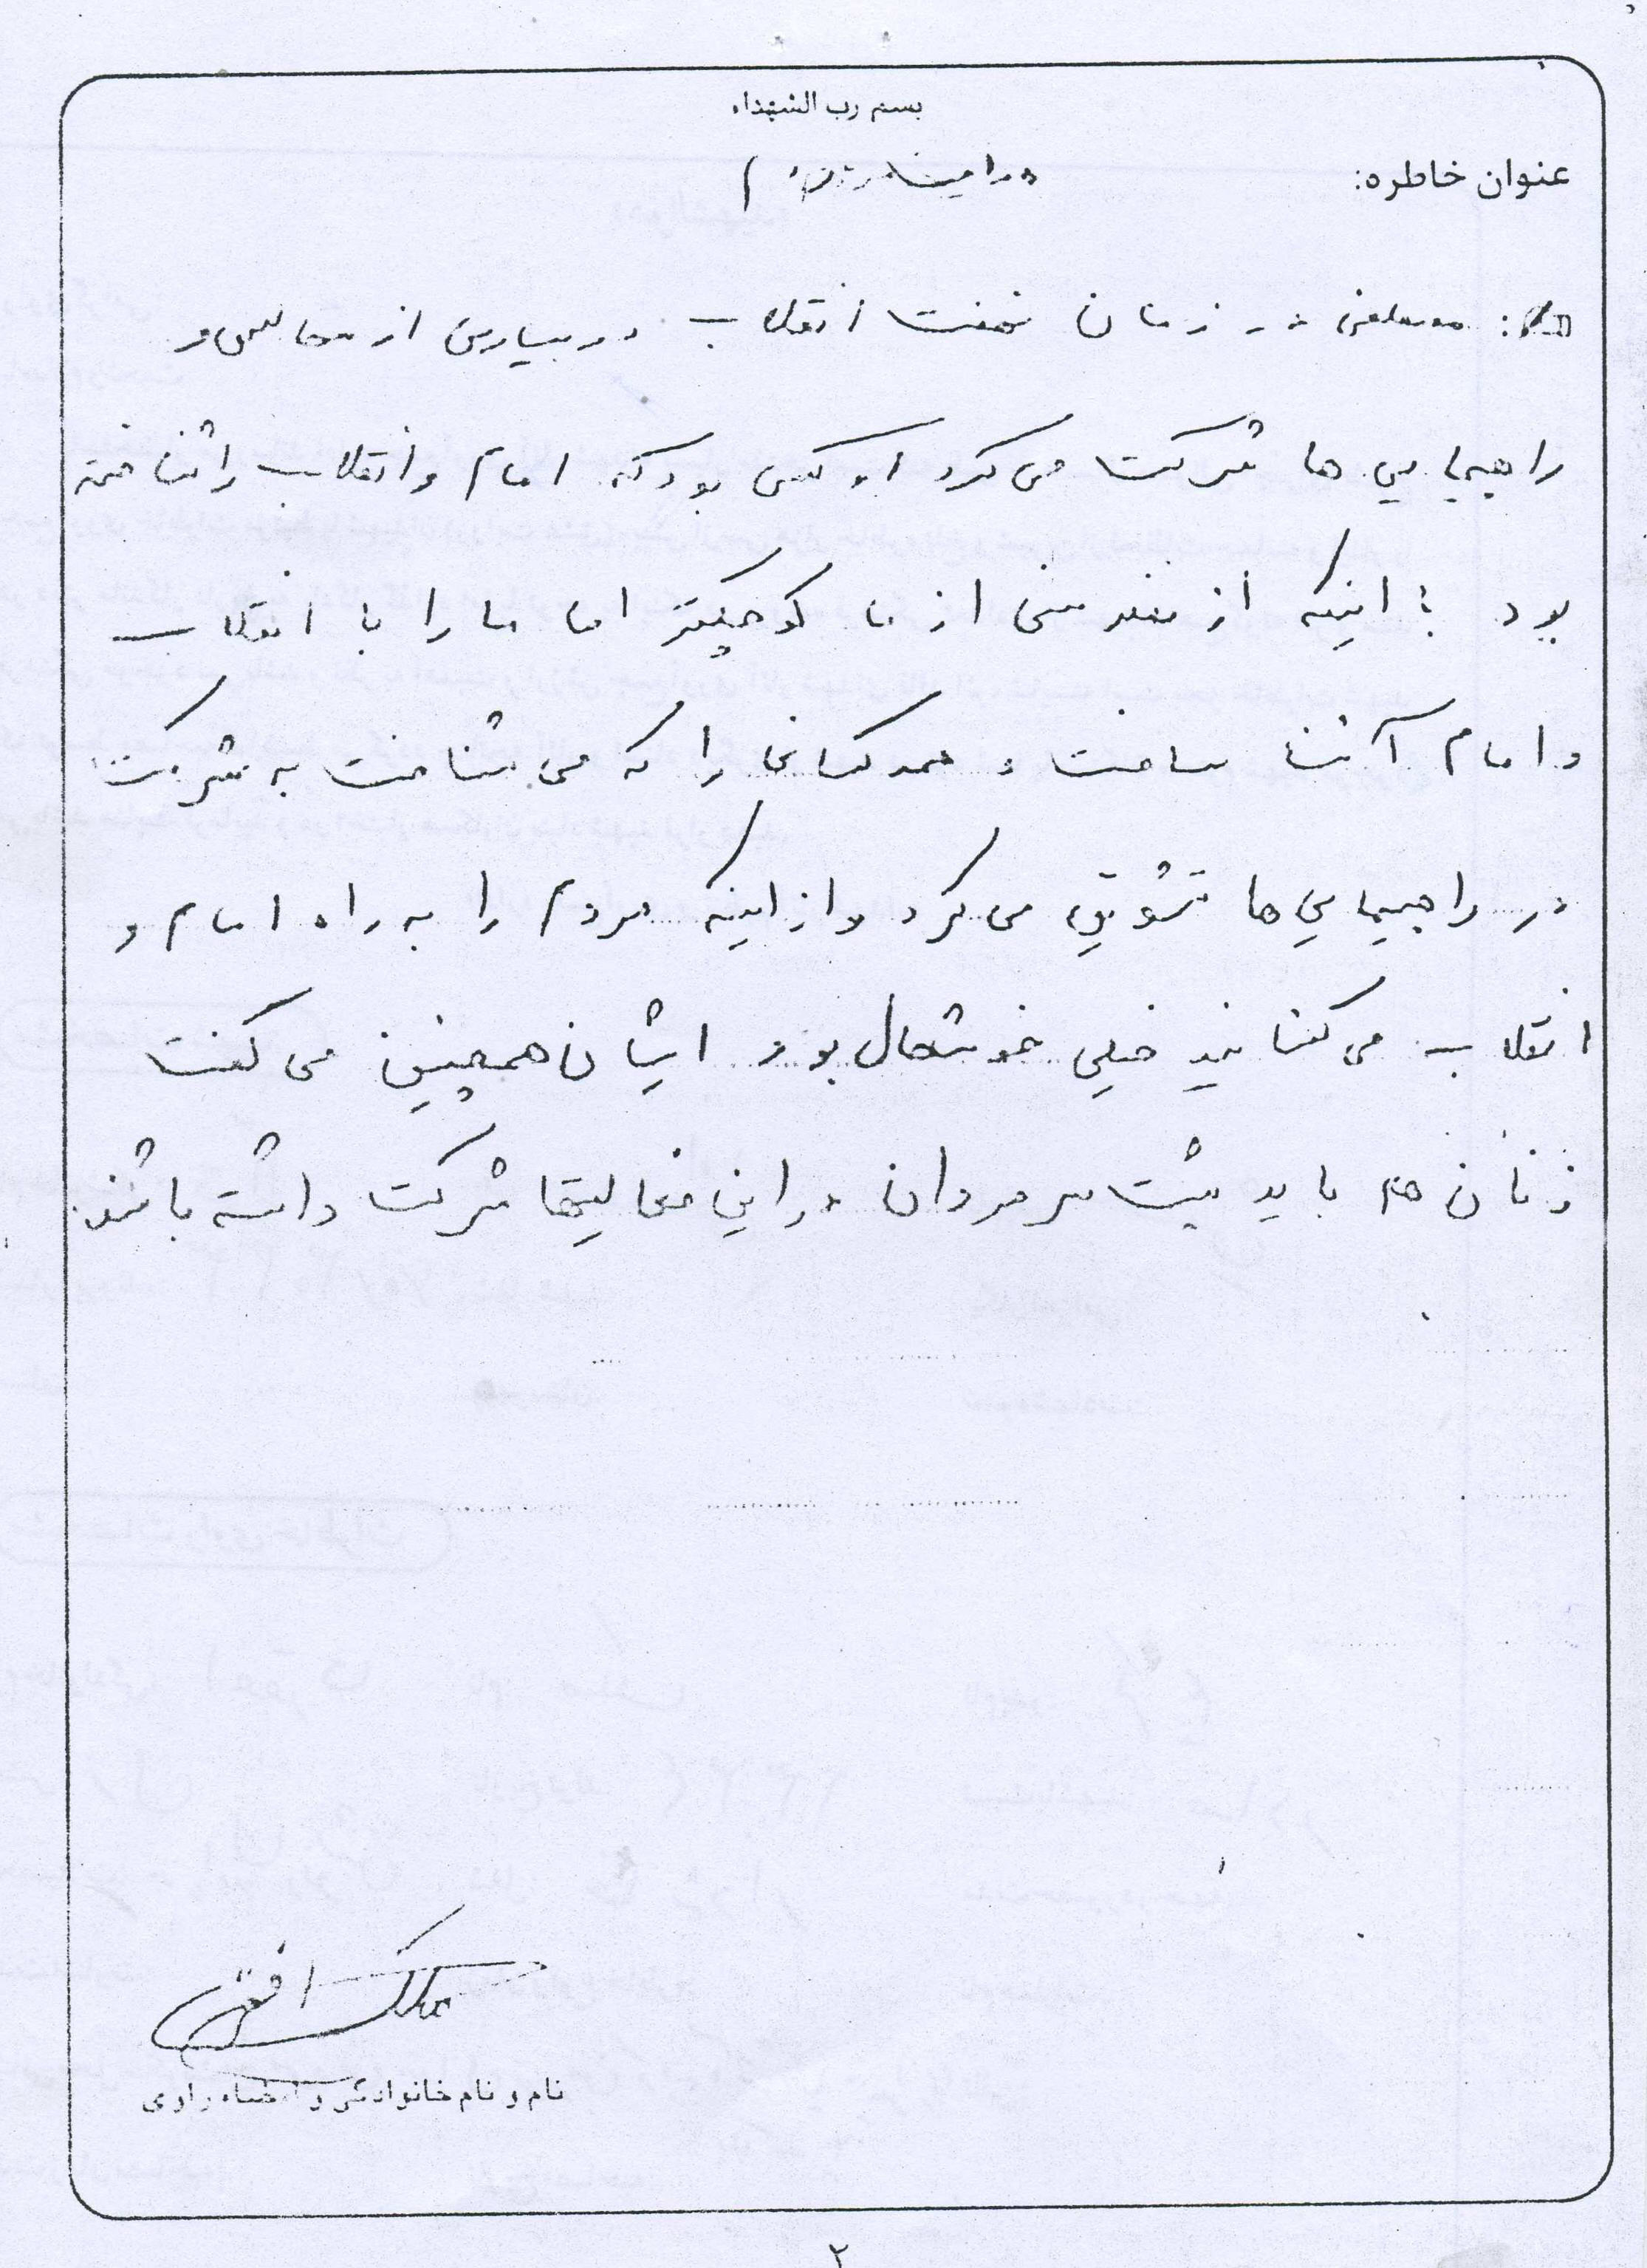 بسم رب الشهداء
عنوان خاطره:
مصطفی در زمان نهضت انقلاب در بسیاری از مجالس و
راهپیمایی ها شرکت می کرد او کسی بود که امام و انقلاب را شناخته
بود با اینکه از نظر سنی از ما کوچکتر اما ما را با انقلاب
و امام آشنا ساخت و همه کسانی را که می شناخت به شرکت
در راهپیمایی ها تشویق می کرد و از اینکه مردم را به راه امام و
انقلاب می کشانید خیلی خوشحال بود ایشان همچنین می گفت
زنان هم باید پشت سر مردان در این فعالیتها شرکت داشته باشند.
نام و نام خانوادگی و امضاء راوی
۲